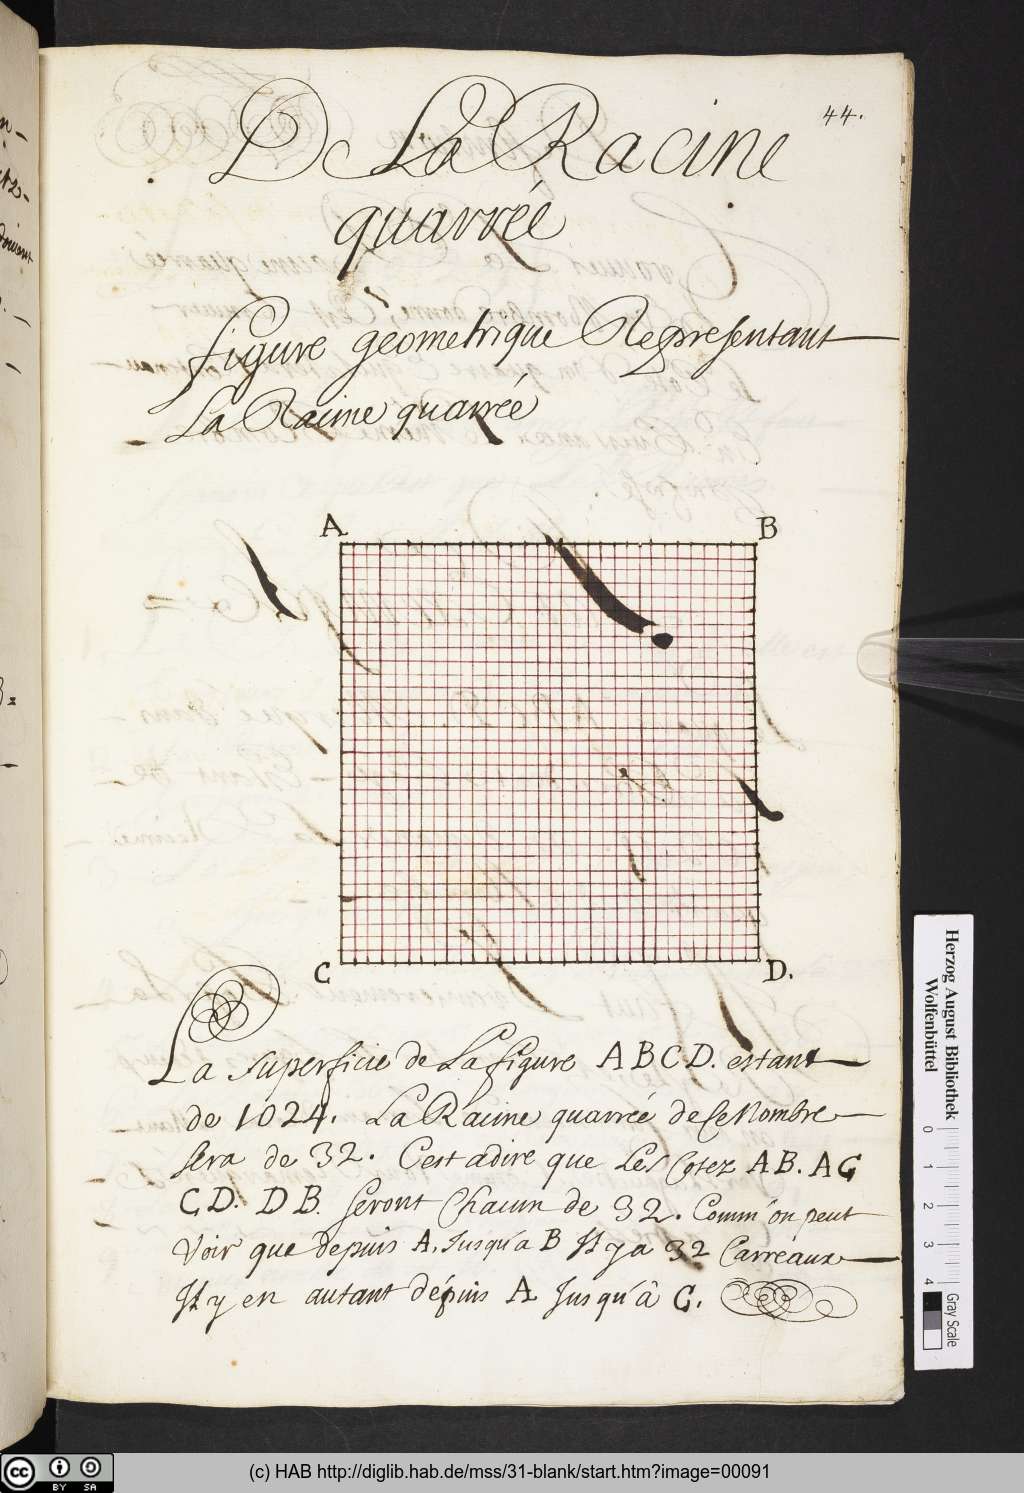 44.
De La Racine
quarrée
figure geometrique Representant
La Racine quarrée
A B
C D.
La superficie de La figure A B C D. estant
de 1024. La Racine quarrée de Ce Nombre
sera de 32. C'est adire que Les Cotez AB. AC
CD. DB. seront Chacun de 32. Comm'on peut
Voir que depuis A. Jusqu'a B Il y a 32 Carreaux
Il y en autant dépuis A Jusqu'â C.
Herzog August Bibliothek
Wolfenbüttel
0 1 2 3 4
Gray Scale
cc BY SA
(c) HAB http://diglib.hab.de/mss/31-blank/start.htm?image=00091